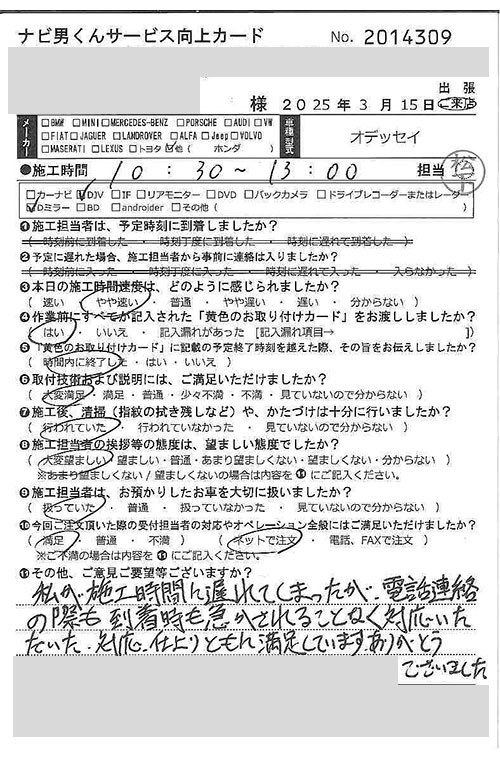 ナビ男くんサービス向上カード No. 2014309
様 2025年3月15日 出張 ご来店
メーカー □BMW □MINI □MERCEDES-BENZ □PORSCHE □AUDI □VW
□FIAT □JAGUER □LANDROVER □ALFA □Jeep □VOLVO
□MASERATI □LEXUS □トヨタ ☑他( ホンダ )
車種型式 オデッセイ
●施工時間 10:30~13:00 担当 松下
□カーナビ ☑DJV □IF □リアモニター □DVD □バックカメラ □ドライブレコーダーまたはレーダー
☑Dミラー □BD □androider □その他( )
❶施工担当者は、予定時刻に到着しましたか?
( 時刻前に到着した ・ 時刻丁度に到着した ・ 時刻に遅れて到着した )
❷予定に遅れた場合、施工担当者から事前に連絡は入りましたか?
( 時刻前に入った ・ 時刻丁度に入った ・ 時刻に遅れて入った ・ 入らなかった )
❸本日の施工時間速度は、どのように感じられましたか?
( 速い ・ やや速い ・ 普通 ・ やや遅い ・ 遅い ・ 分からない )
❹作業前にすべてが記入された「黄色のお取り付けカード」をお渡ししましたか?
( はい ・ いいえ ・ 記入漏れがあった [記入漏れ項目→ ])
❺「黄色のお取り付けカード」に記載の予定終了時刻を越えた際、その旨をお伝えしましたか?
( 時間内に終了した ・ はい ・ いいえ )
❻取付技術および説明には、ご満足いただけましたか?
( 大変満足 ・ 満足 ・ 普通 ・ 少々不満 ・ 不満 ・ 見ていないので分からない )
❼施工後、清掃(指紋の拭き残しなど)や、かたづけは十分に行いましたか?
( 行われていた ・ 行われていなかった ・ 見ていないので分からない )
❽施工担当者の挨拶等の態度は、望ましい態度でしたか?
( 大変望ましい ・ 望ましい ・ 普通 ・ あまり望ましくない ・ 望ましくない ・ 分からない )
※あまり望ましくない / 望ましくないの場合は内容を⓫にご記入ください。
❾施工担当者は、お預かりしたお車を大切に扱いましたか?
( 扱っていた ・ 普通 ・ 扱っていなかった ・ 見ていないので分からない )
❿今回ご注文頂いた際の受付担当者の対応やオペレーション全般にはご満足いただけましたか?
( 満足 ・ 普通 ・ 不満 ) ( ネットで注文 ・ 電話、FAXで注文 )
※ご不満の場合は内容を⓫にご記入ください。
⓫その他、ご意見ご要望等ございますか?
私が施工時間に遅れてしまったが、電話連絡
の際も到着時も急かされることなく対応いた
だいた。対応、仕上りともに満足しています。ありがとう
ございました